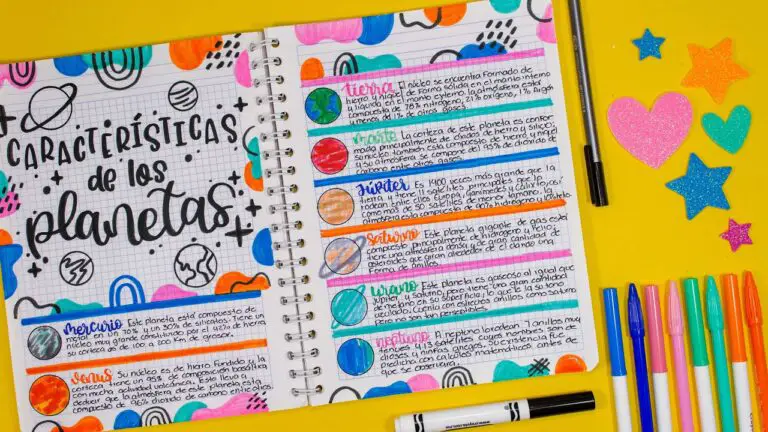 CARACTERÍSTICAS
de los
planetas
Mercurio Este planeta está compuesto de
metal en un 70% y un 30% de silicatos. Tiene un
núcleo muy grande constituido por el 42% de hierro,
su corteza es de 100 a 200 Km de grosor.
Venus Su núcleo es de hierro fundido y la
corteza tiene un 95% de composición basáltica
con mucha actividad volcánica. Esto lleva a
deducir que la atmósfera de este planeta está
compuesto de 96% dióxido de carbono entre otros.
tierra El núcleo se encuentra formado de
hierro y níquel de forma sólida en el manto interno
y líquida en el manto externo. la atmósfera esta
compuesta de 78% nitrógeno, 21% oxígeno, 1% Argón
y menos de 1% de otros gases.
marte La corteza de este planeta es
mada principalmente de óxidos de hierro y silicio;
su núcleo también está compuesto de hierro y níquel
y su atmósfera se compone del 95% de dióxido de
carbono entre otros gases.
Júpiter Es 1400 veces más grande que la
tierra, y tiene 11 satélites principales que lo
rodean entre ellos Europa, Ganimedes y Calixto; así
como más de 50 satélites de menor tamaño. la
atmósfera está compuesta de hidrógeno y
Saturno Este planeta gigante de gas está
compuesto principalmente de hidrógeno y helio,
tiene una atmósfera densa y de gran cantidad de
asteroides que giran alrededor de él dando una
forma de anillos.
urano Este planeta es gaseoso al igual que
Júpiter y Saturno, pero tiene una gran cantidad
de metano en su superficie, lo que le da su tono
azulado. Cuenta con extensos anillos como saturno
pero no son tan perceptibles.
neptuno A neptuno lo rodean 7 anillos muy
tenues y 13 satélites cuyos nombres son de
dioses y ninfas griegas. Su existencia fué
predicha con cálculos matemáticos antes de
que se observara.